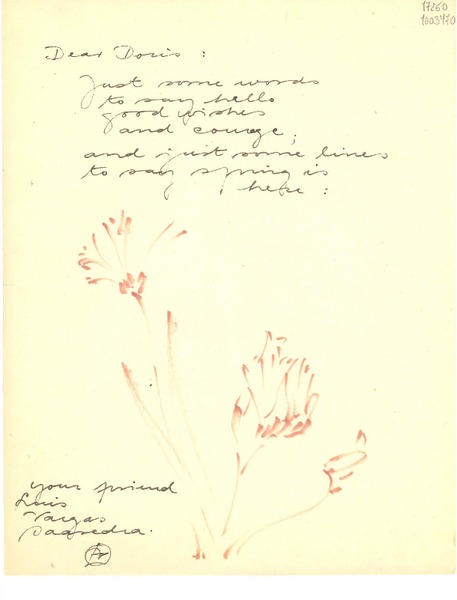 17260
1003470
Dear Doris :
Just some words
to say hello
good wishes
and courage ;
and just some lines
to say spring is
here :
your friend
Luis
Vargas
Saavedra.